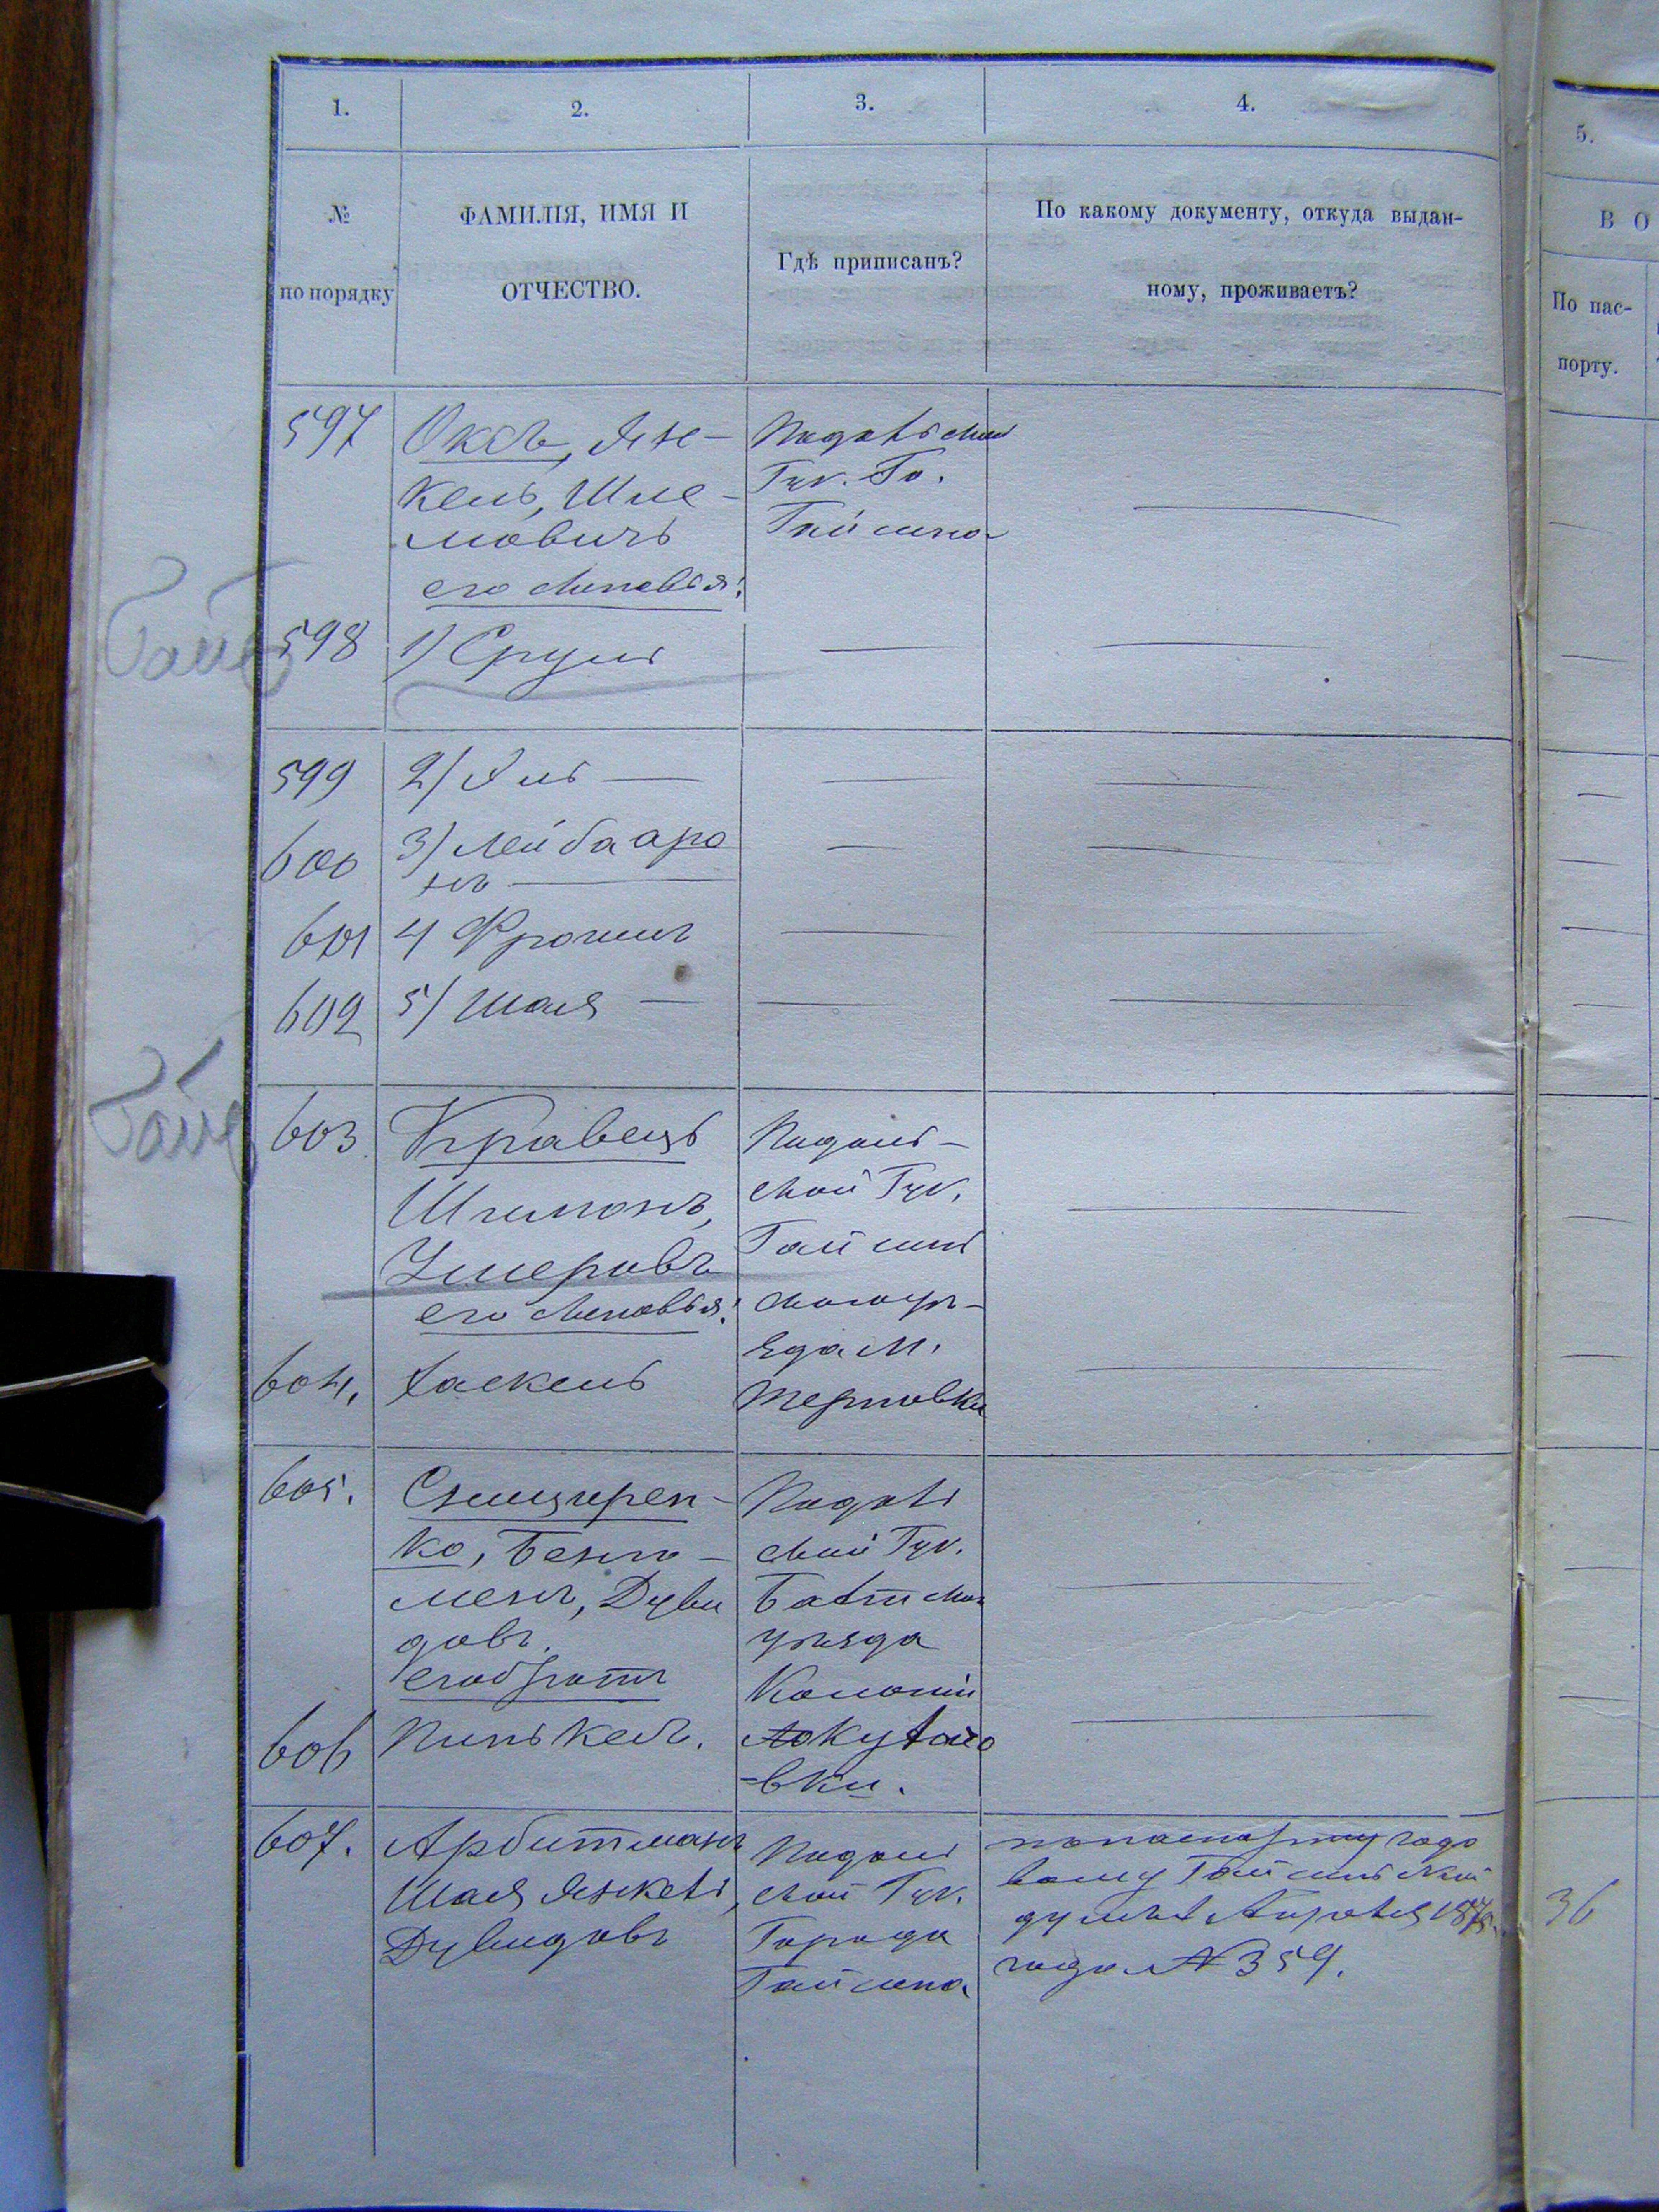 1.
2.
3.
4.
5.
№
по порядку
ФАМИЛІЯ, ИМЯ И
ОТЧЕСТВО.
Гдѣ приписанъ?
По какому документу, откуда выдан-
ному, проживаетъ?
В О
По пас-
порту.
597
Оксъ, Ян-
кель, Шле-
мовичъ
его сыновья:
Подольской
Губ. Го.
Гайсина
598
1) Сруль
599
2) Хиль
600
3) Лейба аро
нъ
601
4 Фроимъ
602
5) Шая
603
Кравецъ
Шлимонъ,
его сыновья:
Подоль-
ской Губ.
Гайсин
скогоуѣ-
зда м.
Терновки
604.
Хаскель
605.
ко, Беню-
менъ, Дуви
довъ.
егобратъ
Подоль
ской Губ.
Балтског
уѣзда
Колоніи
вки.
606
Пинькасъ.
607.
Арбитманъ
Шая Янкель,
Дувидовъ
Подоль
ской Губ.
Города
Гайсина
попаспорту годо
вому Гайсинской
думы Апрѣля 1875
года № 359.
36